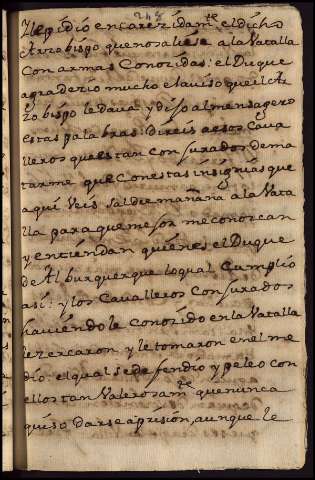 248
Y le pidio encarezidam.te el dicho
Arzobispo que no saliese a la Vatalla
Con armas Conozidas: el Duque
agradezio mucho el auiso que el Ar
zobispo le daua y dijo al mensagero
estas palabras: direis a esos Caua
lleros que estan Con jurados de ma
tarme que Con estas insignias que
aqui Veis saldre mañana a la Vata
lla para que mejor me conozcan
y entiendan quien es el Duque
de Alburquerque lo qual Cumplio
asi: y los Caualleros Con jurados
hauiendole Conozido en la Vatalla
le zercaron y le tomaron en el me
dio: el qual se defendio y peleo con
ellos tan Valerosam.te que nunca
quiso darse a prision, aunque le